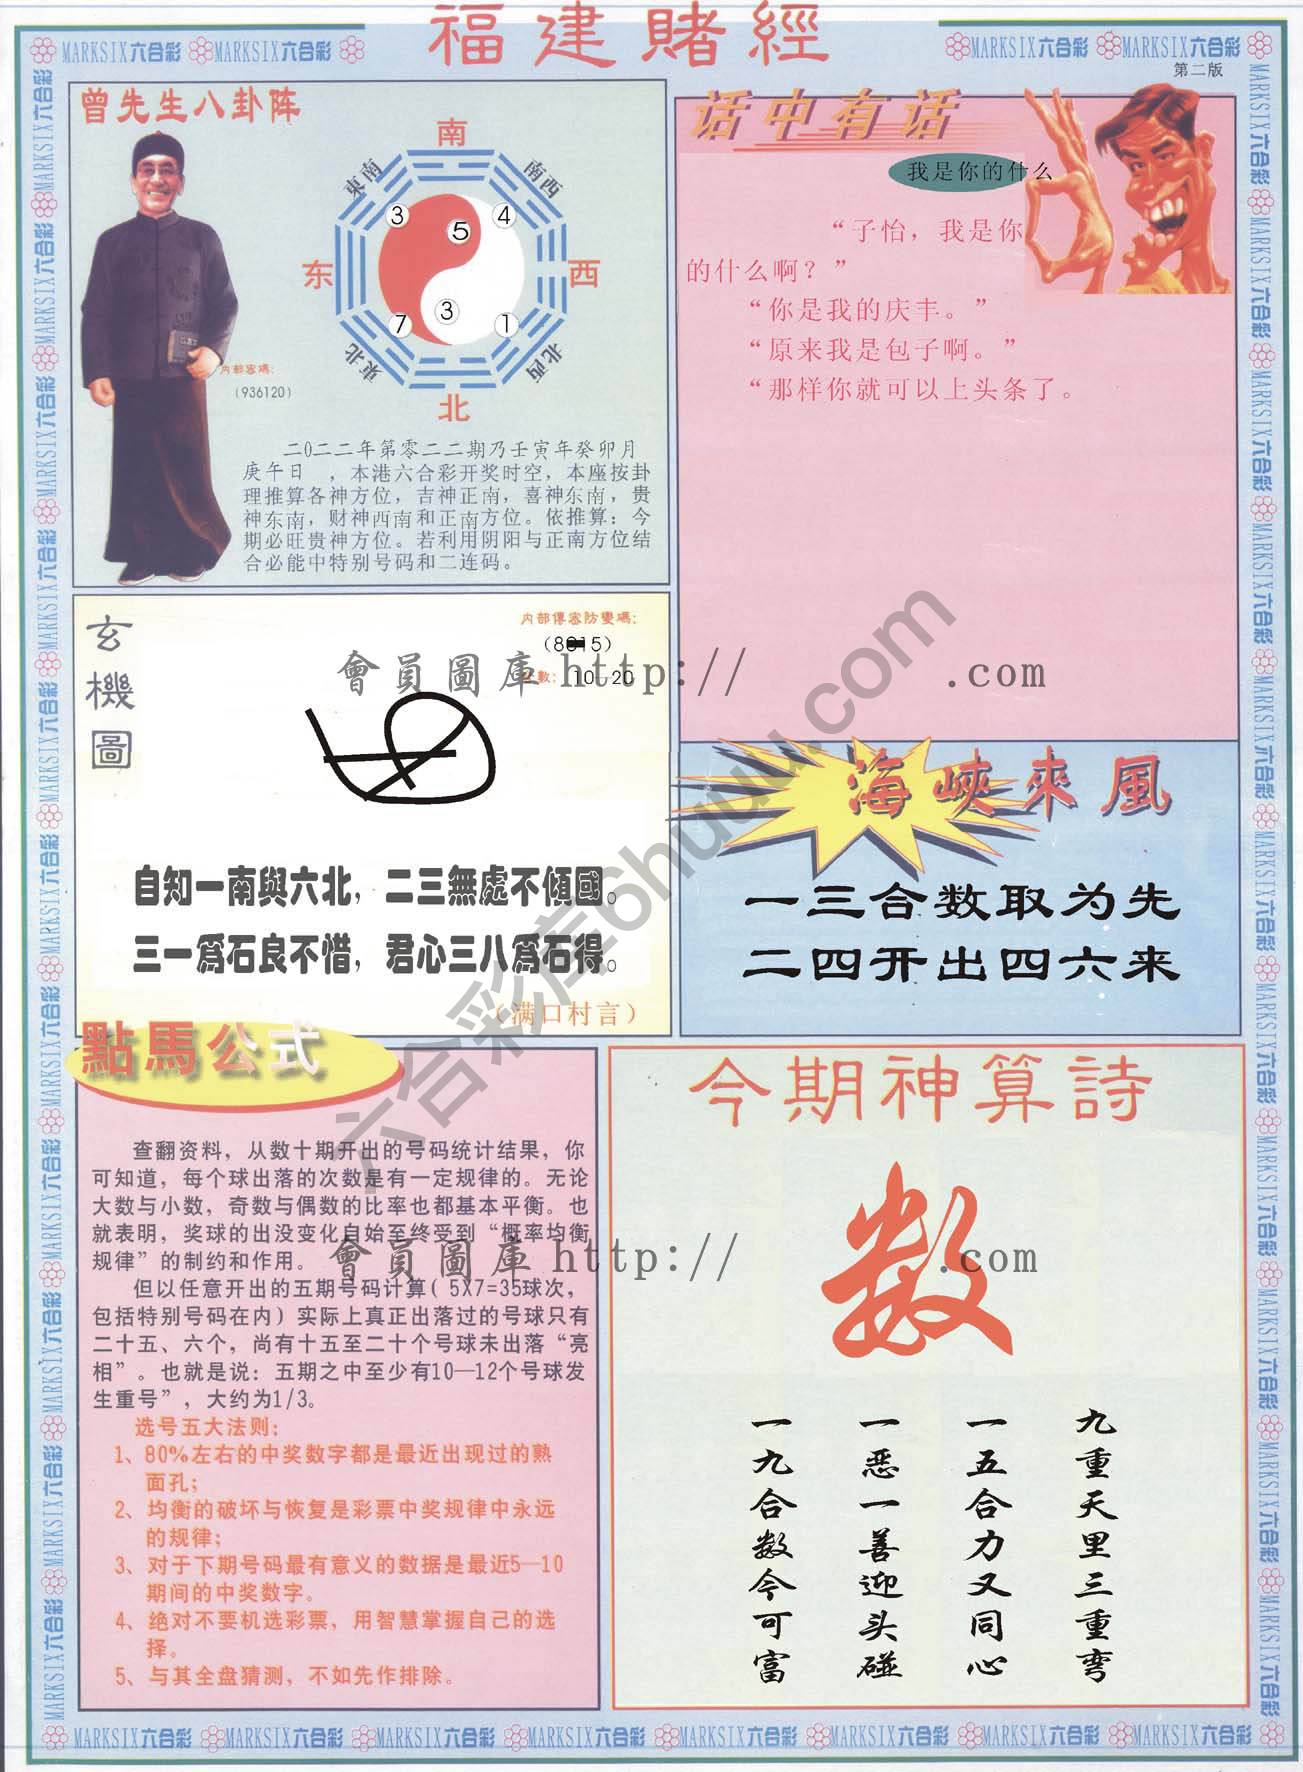 福建賭經
MARKSIX六合彩 MARKSIX六合彩
MARKSIX六合彩 MARKSIX六合彩
第二版
曾先生八卦阵
南
東南
南西
3
5
4
东
西
7
3
1
東北
北西
北
内部密碼:
(936120)
二0二二年第零二二期乃壬寅年癸卯月
庚午日 ,本港六合彩开奖时空,本座按卦
理推算各神方位,吉神正南,喜神东南,贵
神东南,财神西南和正南方位。依推算:今
期必旺贵神方位。若利用阴阳与正南方位结
合必能中特别号码和二连码。
话中有话
我是你的什么
“子怡,我是你
的什么啊?”
“你是我的庆丰。”
“原来我是包子啊。”
“那样你就可以上头条了。
玄機圖
内部傳密防變碼:
數: 10 20
會員圖庫 http:// .com
自知一南與六北,二三無處不傾國。
三一爲石良不惜,君心三八爲石得。
(满口村言)
海峽來風
一三合数取为先
二四开出四六来
六合彩库6huuu.com
點馬公式
查翻资料,从数十期开出的号码统计结果,你
可知道,每个球出落的次数是有一定规律的。无论
大数与小数,奇数与偶数的比率也都基本平衡。也
就表明,奖球的出没变化自始至终受到“概率均衡
规律”的制约和作用。
但以任意开出的五期号码计算(5X7=35球次,
包括特别号码在内)实际上真正出落过的号球只有
二十五、六个,尚有十五至二十个号球未出落“亮
相”。也就是说:五期之中至少有10—12个号球发
生重号”,大约为1/3。
选号五大法则:
1、80%左右的中奖数字都是最近出现过的熟
面孔;
2、均衡的破坏与恢复是彩票中奖规律中永远
的规律;
3、对于下期号码最有意义的数据是最近5—10
期间的中奖数字。
4、绝对不要机选彩票,用智慧掌握自己的选
择。
5、与其全盘猜测,不如先作排除。
今期神算詩
數
會員圖庫 http:// .com
九重天里三重弯
一五合力又同心
一恶一善迎头碰
一九合数今可富
MARKSIX六合彩 MARKSIX六合彩 MARKSIX六合彩 MARKSIX六合彩 MARKSIX六合彩 MARKSIX六合彩 MARKSIX六合彩 MARKSIX六合彩